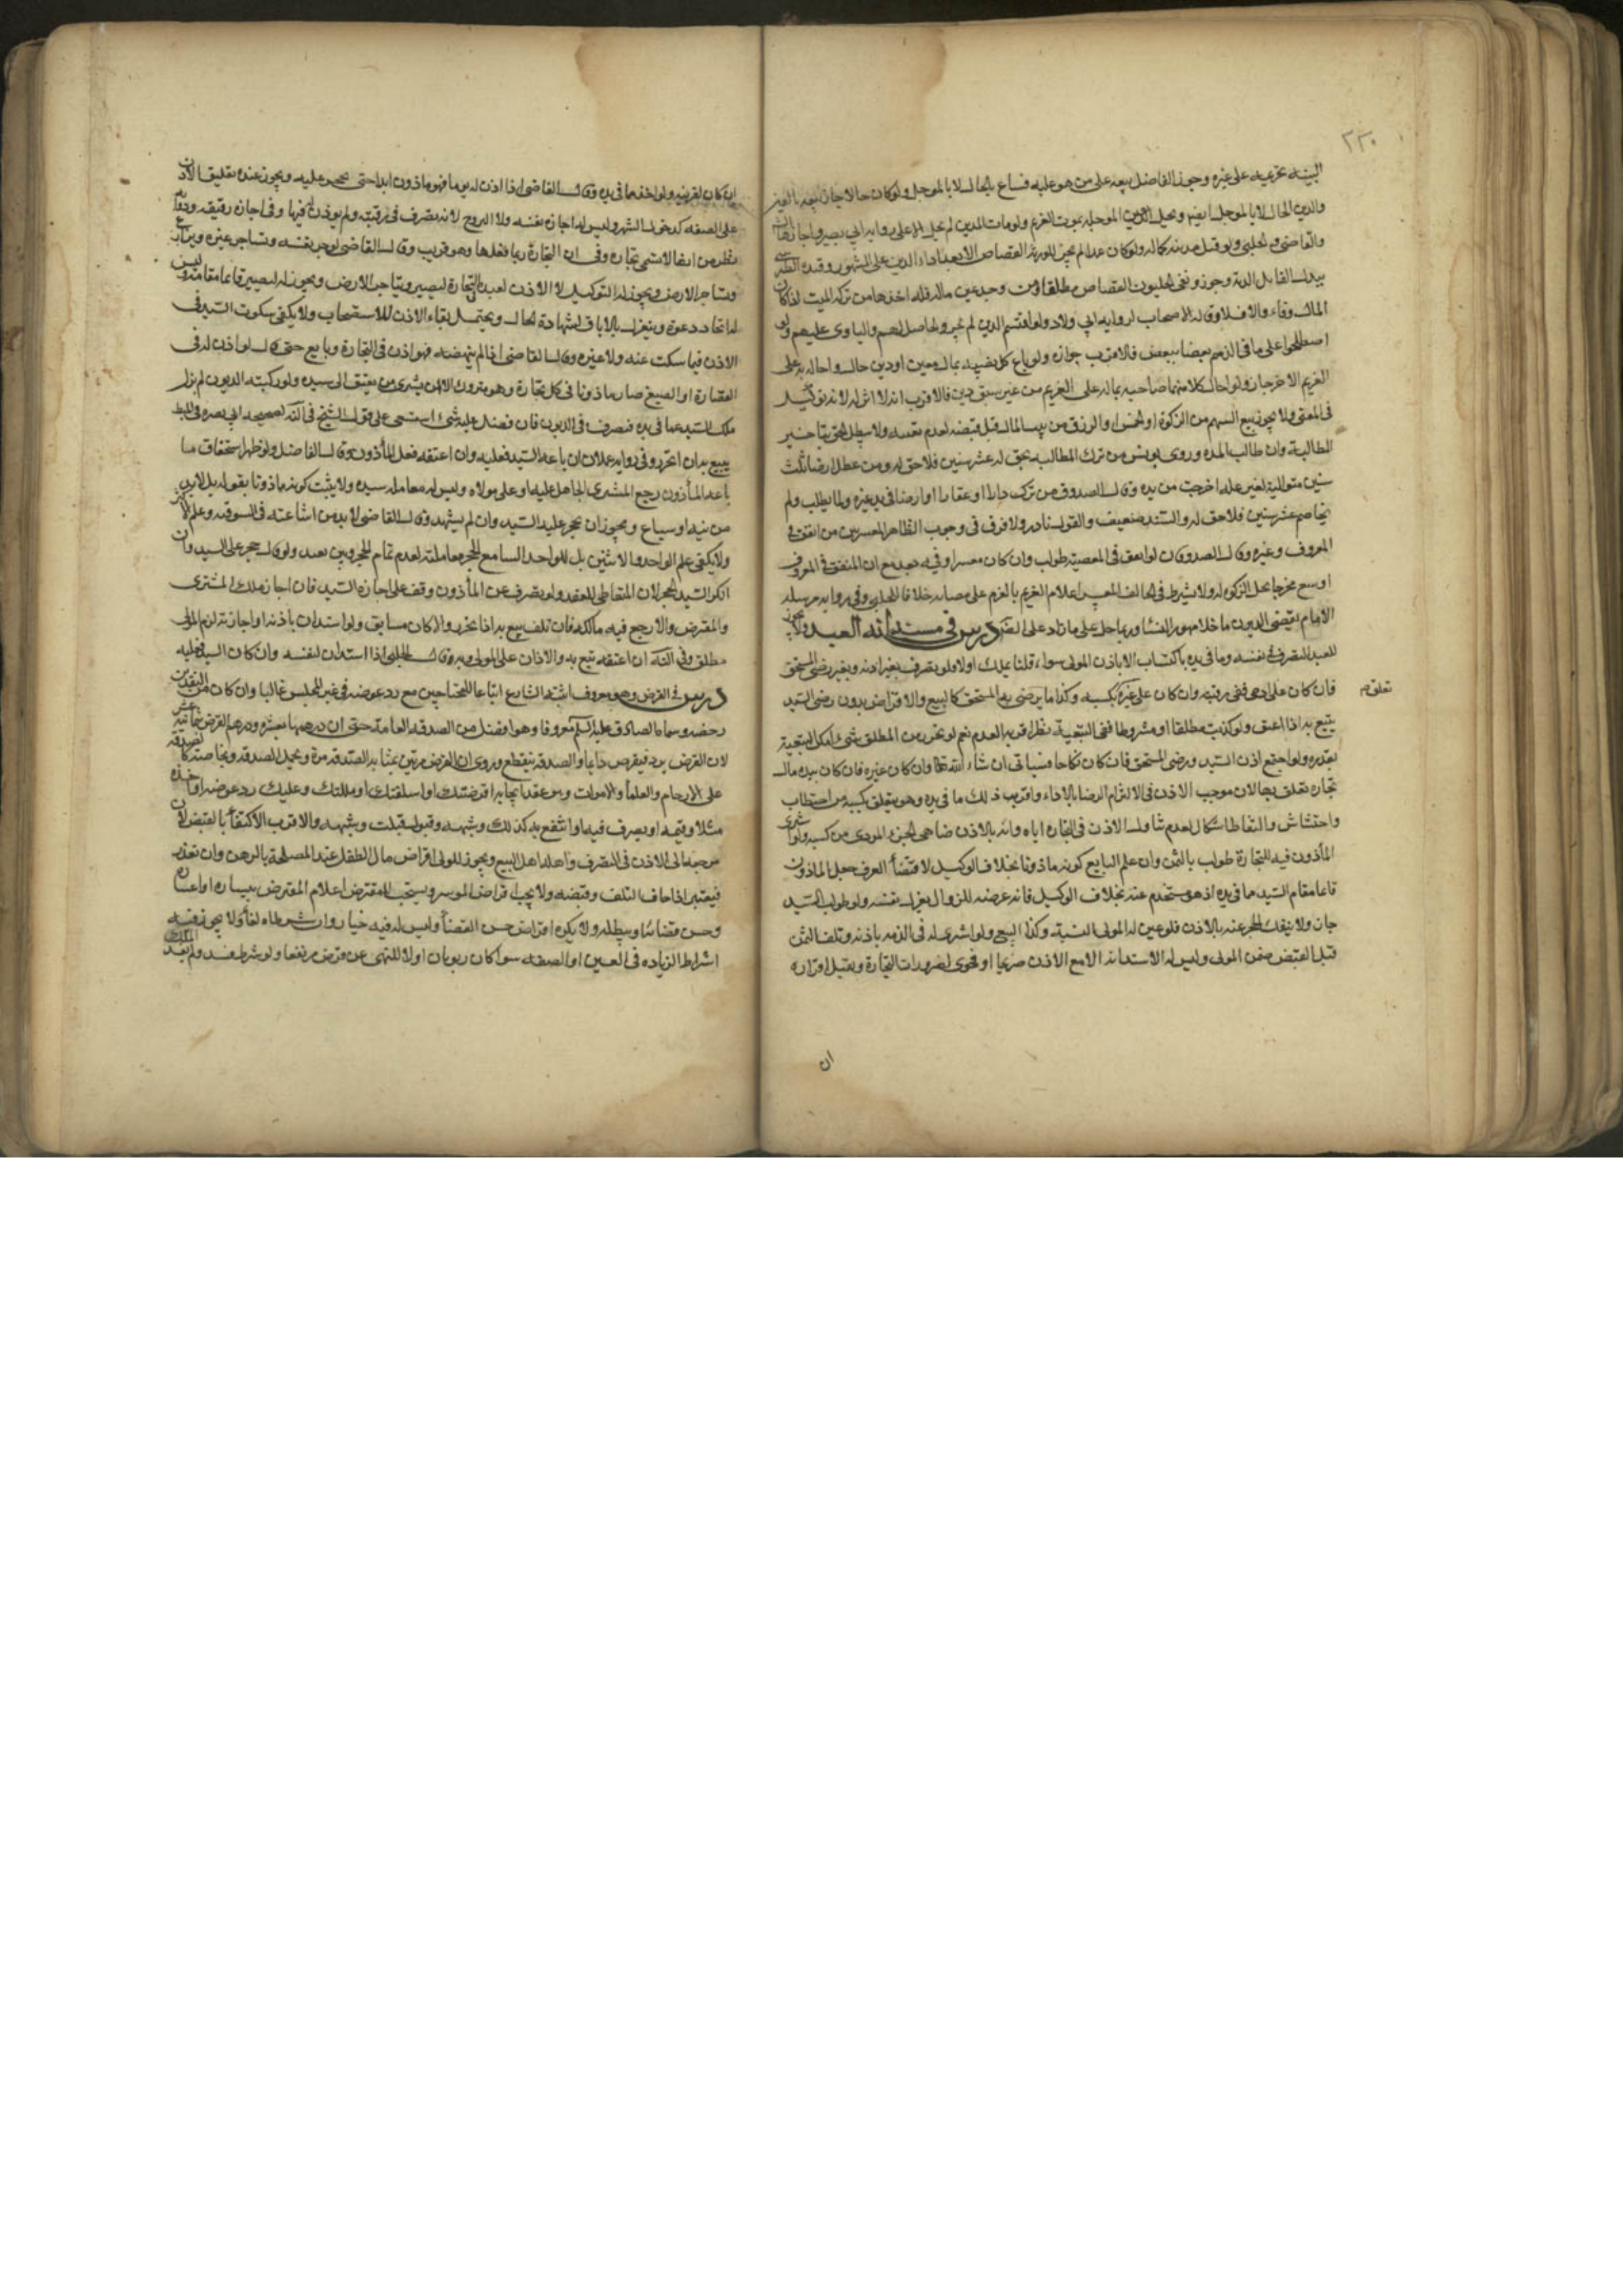 ٢٢٠
البينة تحرميه على غيره وجوز الفاضل بيعه على من هو عليه فيباع بالحال لا بالموجل ولو كان حالا جاز بيعه بالعين
والدين الحال لا بالموجل ايضا ويحل الديون الموجله بموت الغريم ولو مات المدين لم يحل الا على رواية ابي بصير واجازها
والقاضي والحلبي ولو قتل مدينه عمدا لم يجز للورثة القصاص الا بعد اداء الدين على المشهور وقيده الطبرسي
ببذل القاتل الدية وجوز ونفى الحليون القصاص مطلقا ومن وجد عين ماله فله اخذها من تركة الميت اذا كان
المال وفاء والا فلا وقاله الاصحاب لرواية ابي ولاد ولو اقتسم الدين لم يجز والحاصل لهم والتاوي عليهم ولو
اصطلحوا على ما في الذمم بعضا ببعض فالاقرب جوازه ولو باع كل نصيبه بمال معين او دين حال واحاله به على
الغريم الاخر جاز ولو احال كلا منهما صاحبه بماله على الغريم من غير سبق دين فالاقرب انه لا اثر له لانه توكيل
في المعنى ولا يجوز بيع السهم من الزكوة او الخمس او الرزق من بيت المال قبل قبضه لعدم تعينه ولا يبطل الحق بتاخير
المطالبة وان طالت المدة وروى يونس من ترك المطالبة بحق له عشر سنين فلا حق له ومن عطل ارضا ثلث
سنين متوالية لغير علة اخرجت من يده وقال الصدوق من ترك دارا او عقارا او ارضا في يد غيره ولما يطلب ولم
يخاصم عشر سنين فلا حق له والسند ضعيف والقول نادر ولا فرق في وجوب انظار المعسر بين من انفق في
المعروف وغيره وقال الصدوق ان لو انفق في المعصية طولب وان كان معسرا وفيه بعد مع ان المنفق في المعروف
اوسع مخرجا بحل الزكوة له ولا يشترط في الحالف المعسر اعلام الغريم بالعزم على خلافا للحلبي وفي رواية مرسلة
الامام يقضي الديون ما خلا مهور النساء وربما حمل على ما زاد على درس في استدانة العبد ولا يجوز
للعبد التصرف في نفسه وما في يده باكتساب الا باذن المولى سواء قلنا بملك اولا ولو تصرف بغير اذنه وبغير رضى المستحق
فان كان على ادمى ففي رقبته وان كان على غيره بكسبه وكذا ما يرضى به المستحق كالبيع والاقتراض بدون رضى السيد
تعلق
يتبع به اذا اعتق ولو كوتب مطلقا او مشروطا ففي التبعية نظر اقربه العدم نعم لو تحرر من المطلق شيء امكن التبعية
بقدره ولو اجتمع اذن السيد ورضى المستحق فان كان نكاحا فسياتي ان شاء الله تعالى وان كان غيره فان كان بيده مال
تجارة تعلق بها لان موجب الاذن في الالتزام الرضا بالاداء واقرب ذلك ما في يده وهو يتعلق بكسبه من احتطاب
واحتشاش والتقاط اشكال لعدم تناول الاذن في التجارة اياه وانه بالاذن ضاهى الحر المودى من كسبه ولو اشترى
المأذون فيه للتجارة طولب بالثمن وان علم البايع كونه ماذونا بخلاف الوكيل لاقتضاء العرف جعل الماذون
قائما مقام السيد ما في يده اذ هو مستخدم عنه بخلاف الوكيل فانه عرضه للزوال بعزله نفسه ولو طولب السيد
جاز ولا ينفك الحجر عنه بالاذن فلو عين له المولى النسية وكذا البيع ولو اشترى له في الذمة باذنه وتلف الثمن
قبل القبض ضمن المولى وليس له الاستدانة الا مع الاذن صريحا او فحوى لضرورات التجارة ويقبل اقراره
ان
ان كان لقرينة ولو اخذ ما في يده وقال القاضي اذا اذن له يوما فهو ماذون ابدا حتى يحجر عليه ويجوز عنده تعليق الاذن
على الصفة كدخول الشهر وليس له اجارة نفسه ولا التزوج لانه تصرف في رقبته ولم يوذن فيها وفي اجارة رقيقه ودوابه
نظر من انها لا تسمى تجارة وفي ان التجارة ربما فعلها وهو قريب وقال القاضي يوجر نفسه ويستاجر غيره ويزارع
ويستاجر الارض ويجوز له التوكيل لا الاذن لعبد التجارة ليصير ويستاجر الارض ويجوز له ليصير قائما مقامه وليس
له اتخاذ دعوة وينعزل بالاباق لشهادة الحال ويحتمل بقاء الاذن للاستصحاب ولا يكفي سكوت السيد في
الاذن فيما سكت عنه ولا غيره وقال القاضي اذا لم ينهه فهو اذن في التجارة وبايع حتى قال لو اذن له في
القصارة او الصبغ صار ماذونا في كل تجارة وهو متروك الا ان يشترى من يعتق على سيده ولو ركبته الديون لم يزل
ملك السيد عما في يده فيصرف في الديون فان فضل عليه شيء استسعى على قول الشيخ في النهاية لصحيحة ابي بصير وفي المبسوط
يتبع به ان تحرر وفي رواية ان باعه السيد فعليه وان اعتقه فعلى المأذون وقال الفاضل ولو ظهر استحقاق ما
باعه المأذون رجع المشترى الجاهل عليه او على مولاه وليس له معاملة سيده ولا يثبت كونه ماذونا بقوله بل لابد
من بينة او سماع ويجوز ان يحجر عليه السيد وان لم يشهد وقال القاضي لابد من اشاعته في السوق وعلم الاكثر
ولا يكفي علم الواحد والاثنين بل للواحد السامع للحجر معاملته لعدم تمام الحجر وبين بعد ولو قال حجر على السيد وان
انكر السيد الحجر لان المتعاطي للعقد ولو تصرف غير المأذون وقف على اجازة السيد فان اجاز ملك المشترى
والمقرض والا رجع فيه مالكه فان تلف تبع به اذا تحرر والا كان ضايعا ولو استدان باذنه او اجازته لزم المولى
مطلقا وفي النهاية ان اعتقه تبع به والا كان على المولى وبه قال الحلبي اذا استدان لنفسه وان كان السيد فعليه
درس في القرض وهو معروف اثبته الشارع امتاعا للمحتاجين مع رد عوضه في غير المجلس غالبا وان كان من النقدين
رخصه وسماه الصادق عليه السلم معروفا وهو افضل من الصدقة العامة حتى ان درهمها بعشرة ودرهم القرض بثمانية عشر
لان القرض يرد فيقرض دائما والصدقة تنقطع وروى ان القرض مرتين بمثابة الصدقة مرة ويحمل الصدقة الخاصة كالصدقة
على الارحام والعلماء والاموات وهو عقد ايجابه اقرضتك او اسلفتك او ملكتك وعليك رد عوضه او خذه
مثلا وقيمة او تصرف فيه او انتفع به كذلك وشبهه وقبوله قبلت وشبهه والاقرب الاكتفاء بالقبض لان
مرجعه الى الاذن في التصرف واهله اهل البيع ويجوز للولي اقراض مال الطفل عند المصلحة بالرهن وان تعذر
فيعتبر اذا خاف التلف وقبضه ولا يجب اقراض الموسر ويستحب للمقترض اعلام المقرض بيساره او اعساره
وحسن قضائه ومطله ولا يكره اقتراض حسن القضاء وليس له فيه خيار وان شرطاه لغا ولا يجوز فيه
اشتراط الزيادة في العين او الصفة سواء كان ربويا او لا للنهي عن قرض جر نفعا ولو شرط فسد ولم يفد الملك